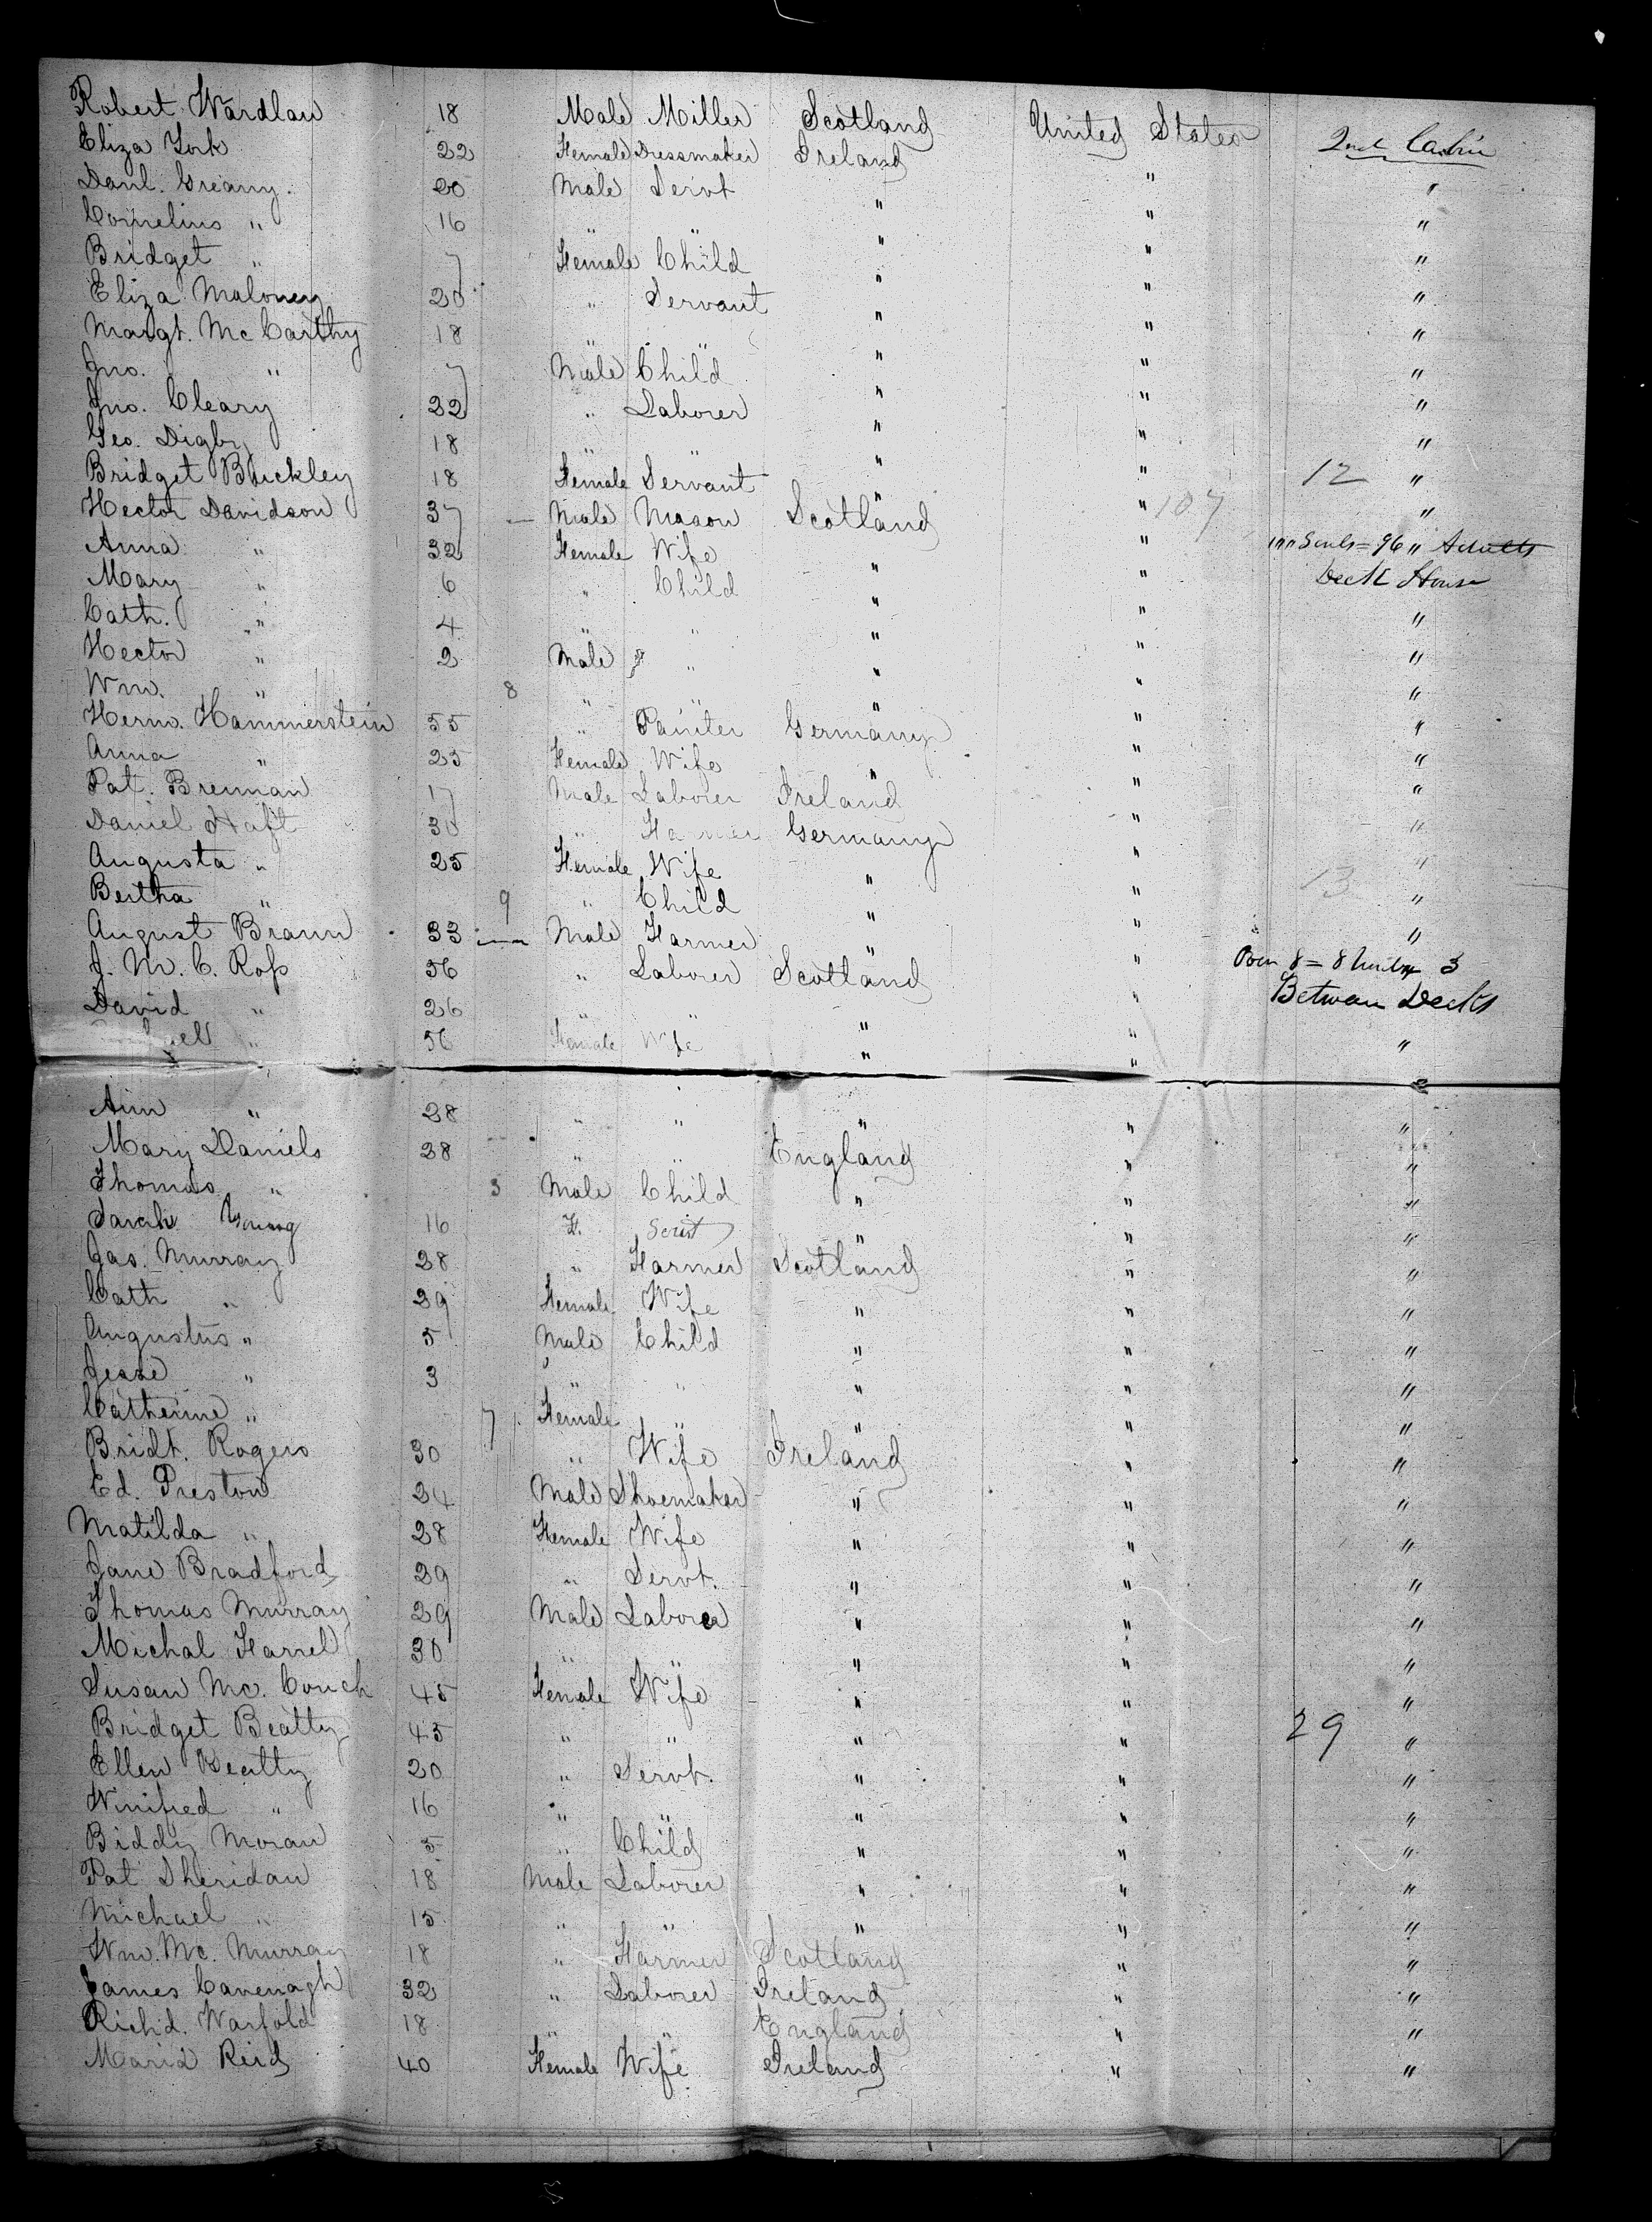 Robert Wardlaw 18 Male Miller Scotland United States 2nd Cabin
Eliza York 22 Female Dressmaker Ireland " "
Danl. Greany. 20 Male Servt " " "
Cornelius " 16 " " " " "
Bridget " 7 Female Child " " "
Eliza Maloney 20 " Servant " " "
Margt. Mc Carthy 18 " " " " "
Jno. " 7 Male Child " " "
Jno. Cleary 22 " Laborer " " "
Geo. Digby 18 " " " " "
Bridget Buckley 18 Female Servant " " 12 "
Hector Davidson 37 Male Mason Scotland " 107 "
Anna " 32 Female Wife " " Souls = 96 " Adults
Mary " 6 " Child " " Deck House
Cath. " 4 " " " " "
Hector " 2 Male " " " "
Wm. " 8 " " " " "
Herm. Hammerstein 55 " Paniter Germany " "
Anna " 25 Female Wife " " "
Pat. Brennan 17 Male Laborer Ireland " "
Daniel Haft 30 " Farmer Germany " "
Augusta " 25 Female Wife " " "
Bertha " 9 " Child " " 13 "
August Braun 33 Male Farmer " " "
J. M. C. Ross 56 " Laborer Scotland " 8 = 8 3
David " 26 " " " " Between Decks
" 56 Female Wife " " "
Ann " 28 " " " " "
Mary Daniels 28 " " England " "
Thomas " 3 Male Child " " "
Sarah Young 16 F. Servt " " "
Jas. Murray 28 " Farmer Scotland " "
Cath " 29 Female Wife " " "
Augustus " 5 Male Child " " "
Jesse " 3 " " " " "
Catherine " 7 Female " " " "
Bridt. Rogers 30 " Wife Ireland " "
Ed. Preston 24 Male Shoemaker " " "
Matilda " 28 Female Wife " " "
Jane Bradford 29 " Servt. " " "
Thomas Murray 29 Male Laborer " " "
Michal Farrel 30 " " " " "
Susan Mc. Couch 45 Female Wife " " "
Bridget Beatty 45 " " " " 29 "
Ellen Beatty 20 " Servt. " " "
Winifred " 16 " " " " "
Biddy Moran 5 " Child " " "
Pat Sheridan 18 Male Laborer " " "
Michael " 15 " " " " "
Wm. Mc. Murray 18 " Farmer Scotland " "
James Cavenagh 32 " Laborer Ireland " "
Richd. Warfold 18 " " England " "
Maria Reid 40 Female Wife Ireland " "